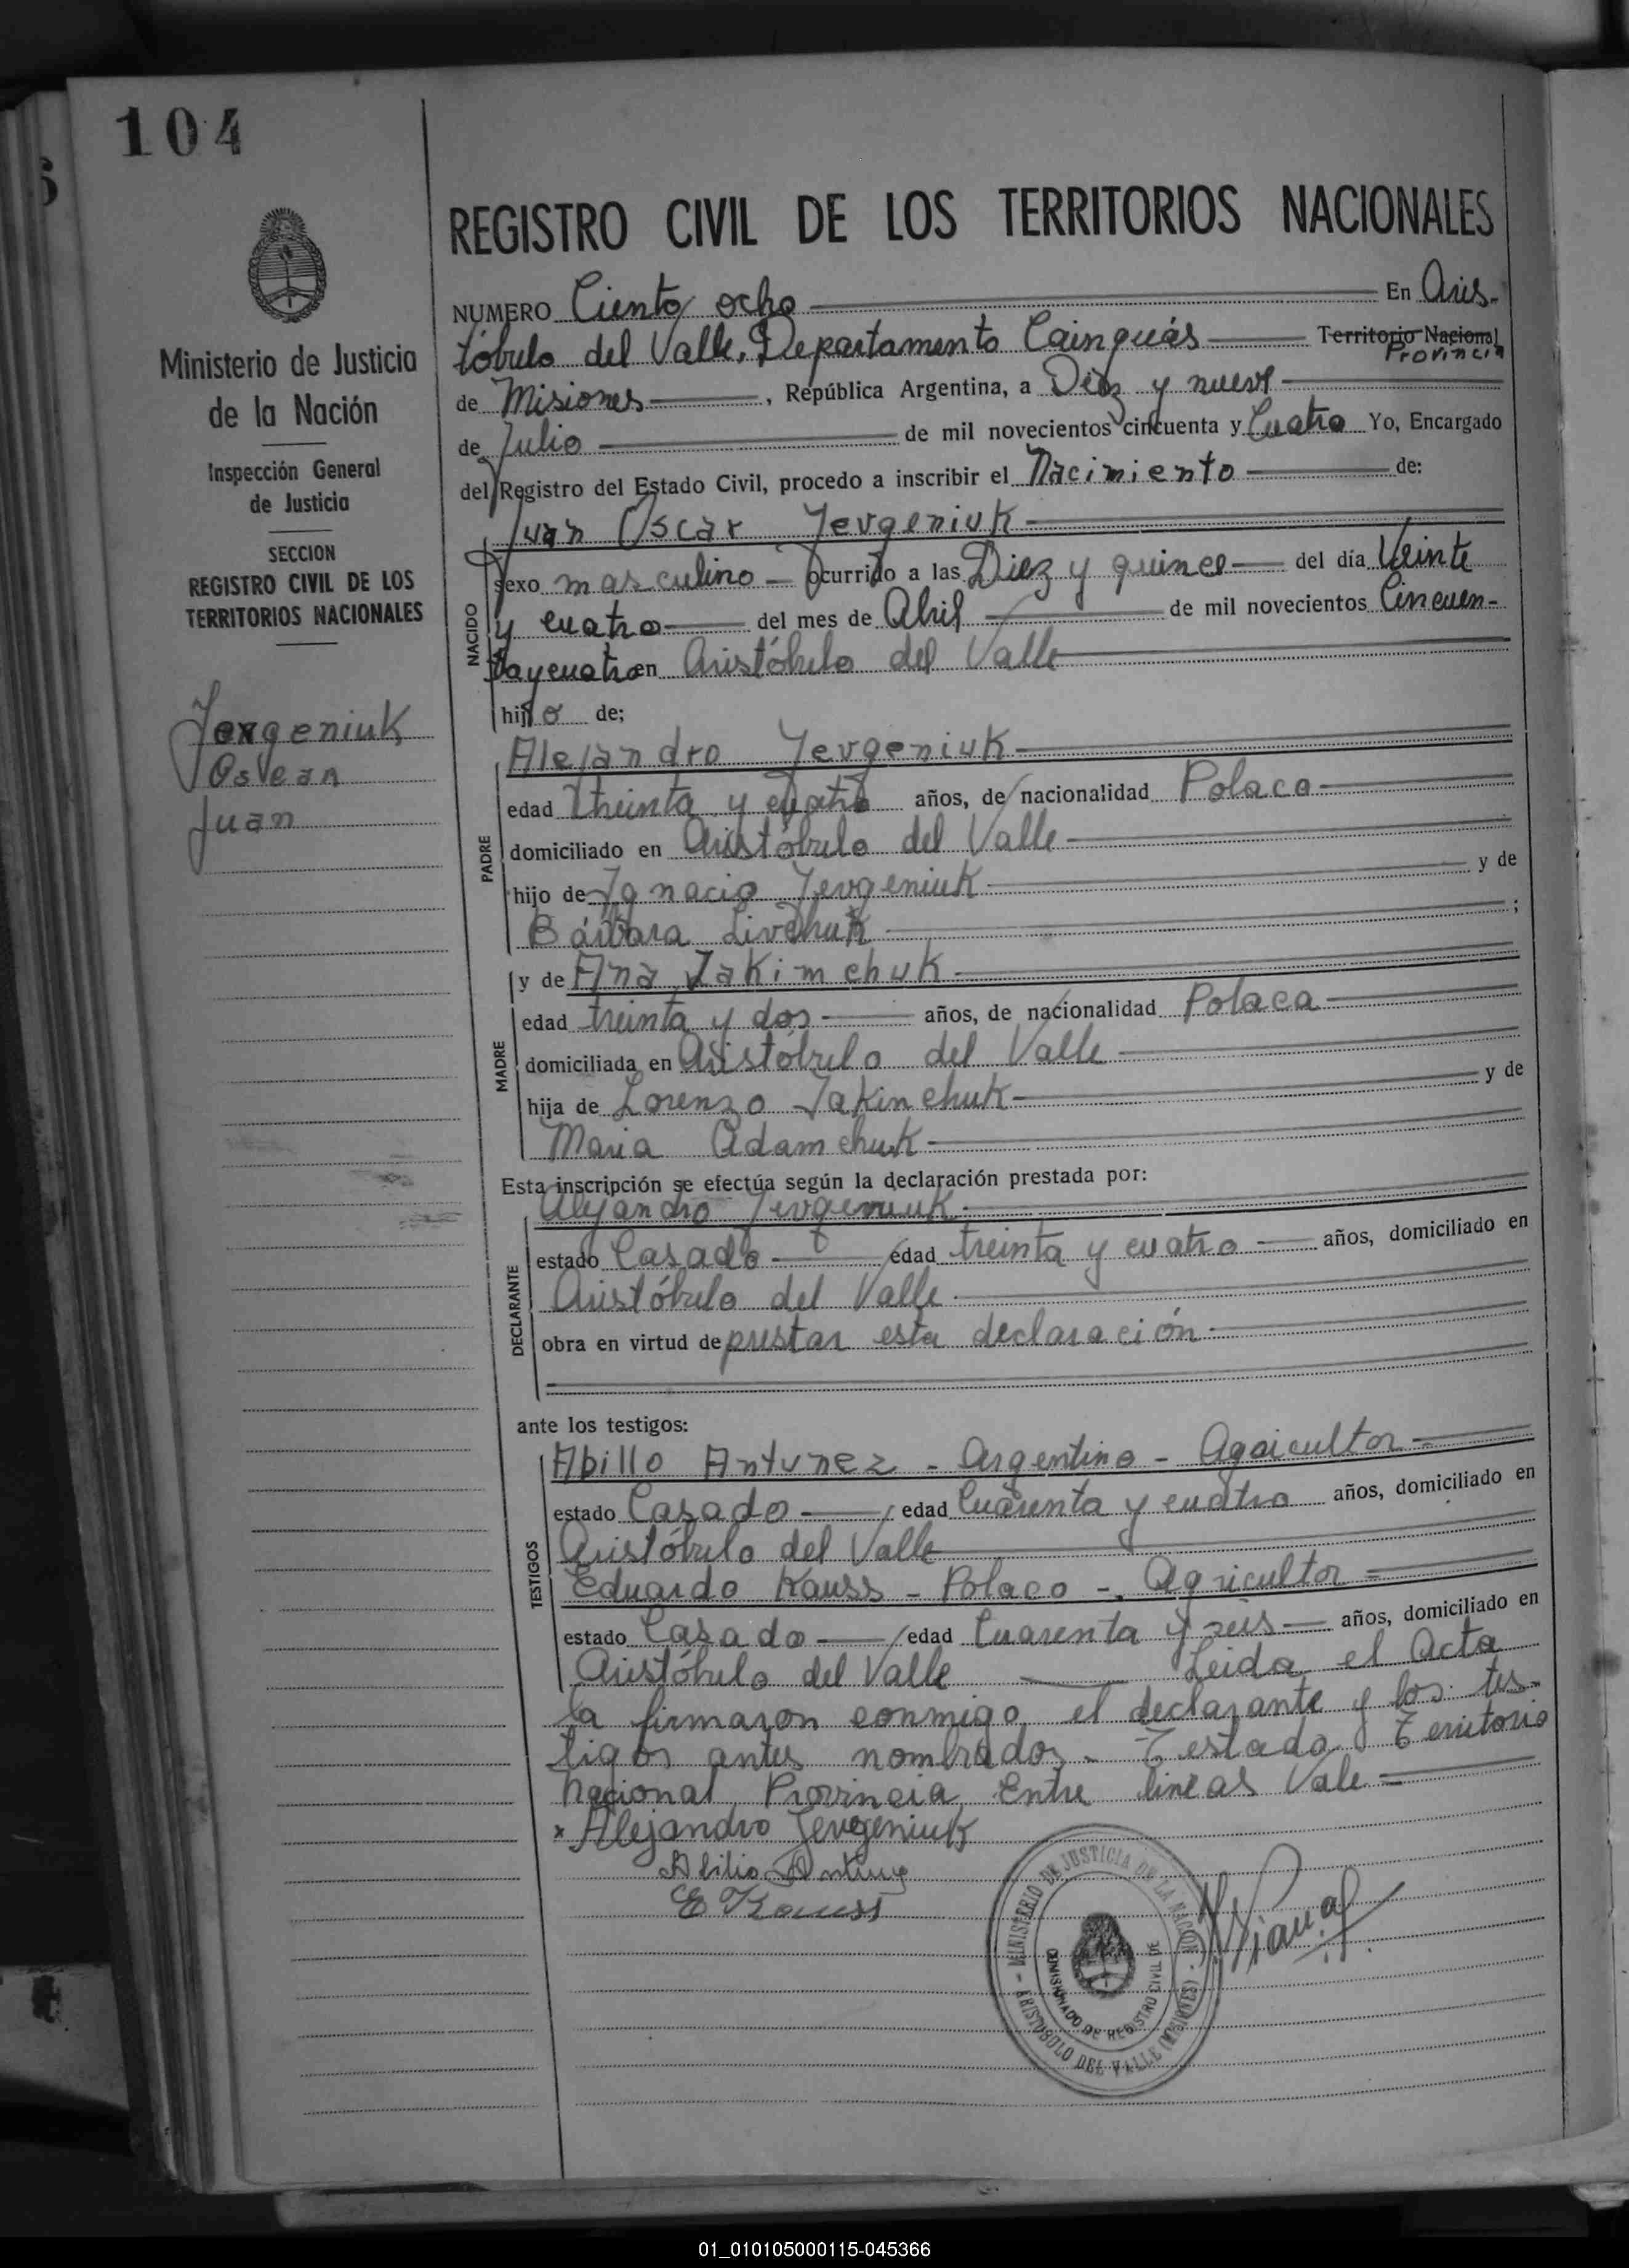 104
REGISTRO CIVIL DE LOS TERRITORIOS NACIONALES
Ministerio de Justicia
de la Nación
Inspección General
de Justicia
SECCION
REGISTRO CIVIL DE LOS
TERRITORIOS NACIONALES
Jevgeniuk
Oscar
Juan
NUMERO Ciento ocho En Aris-
tóbulo del Valle, Departamento Cainguás Territorio Nacional
Provincia
de Misiones, República Argentina, a Diez y nueve
de Julio de mil novecientos cincuenta y Cuatro Yo, Encargado
del Registro del Estado Civil, procedo a inscribir el Nacimiento de:
Juan Oscar Jevgeniuk
NACIDO
sexo masculino ocurrido a las Diez y quince del día Veinte
y cuatro del mes de Abril de mil novecientos Cincuen-
ta y cuatro en Aristóbulo del Valle
hijo de;
Alejandro Jevgeniuk
PADRE
edad treinta y cuatro años, de nacionalidad Polaca
domiciliado en Aristóbulo del Valle
hijo de Ignacio Jevgeniuk y de
Bárbara ;
y de Ana Jakimchuk
MADRE
edad treinta y dos años, de nacionalidad Polaca
domiciliada en Aristóbulo del Valle
hija de Lorenzo Jakinchuk y de
Maria Adamchuk
Esta inscripción se efectúa según la declaración prestada por:
Alejandro Jevgeniuk
DECLARANTE
estado Casado edad treinta y cuatro años, domiciliado en
Aristóbulo del Valle
obra en virtud de prestar esta declaración
ante los testigos:
TESTIGOS
Abilio Antunez - Argentino - Agricultor
estado Casado edad Cuarenta y cuatro años, domiciliado en
Aristóbulo del Valle
Eduardo Kauss - Polaco - Agricultor
estado Casado edad Cuarenta y seis años, domiciliado en
Aristóbulo del Valle Leida el Acta
la firmaron conmigo el declarante y los tes-
tigos antes nombrados - Testado Territorio
Nacional Provincia Entre lineas Vale
x Alejandro Jevgeniuk
Abilio Antunez
E Kauss
MINISTERIO DE JUSTICIA DE LA NACION
COMISIONADO DE REGISTRO CIVIL DE
ARISTOBOLO DEL VALLE (MISIONES)
01_010105000115-045366